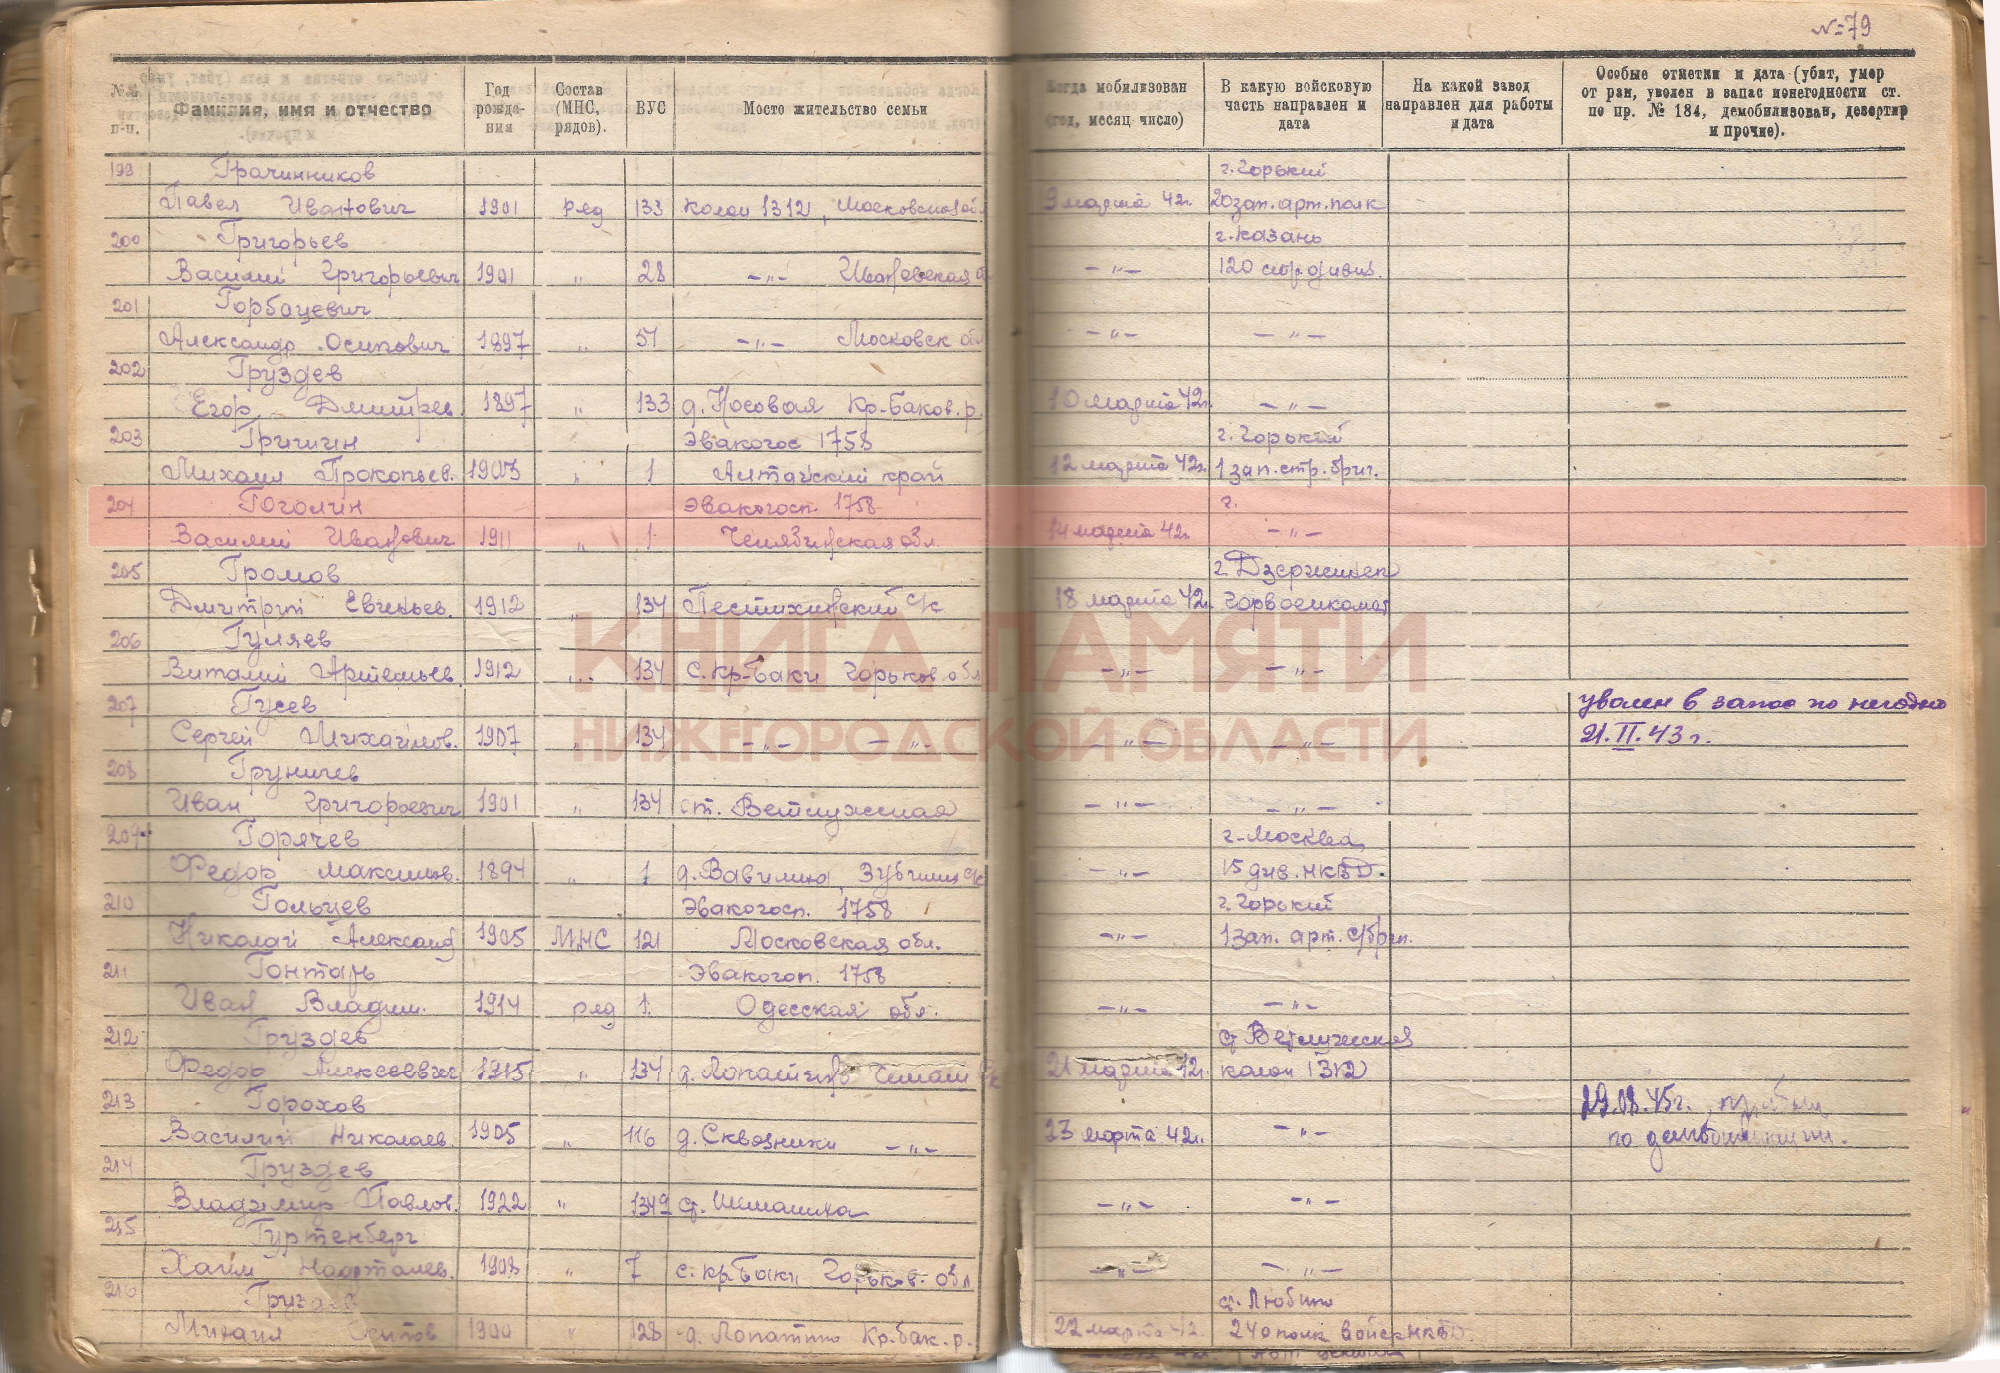 № 79
№№ п-п.
Фамилия, имя и отчество
Год рождения
Состав (МНС, рядов).
ВУС
Место жительство семьи
Когда мобилизован (год, месяц число)
В какую войсковую часть направлен и дата
На какой завод направлен для работы и дата
Особые отметки и дата (убит, умер от ран, уволен в запас понегодности ст. по пр. № 184, демобилизован, дезертир и прочие).
199 Грачинников г. Горький
Павел Иванович 1901 ряд 133 колон 1312, Московская об. 9 марта 42г. 20 зап. арт. полк
200 Григорьев г. Казань
Василий Григорьевич 1901 " 28 -"- Ивановская о. -"- 120 стр дивиз.
201 Горбацевич
Александр Осипович 1897 " 57 -"- Московск обл -"- -"-
202 Груздев
Егор Дмитрев. 1897 " 133 д. Носовая Кр-Баков. р. 10 марта 42г. -"-
203 Гришин Эвакогос 1758 г. Горький
Михаил Прокопьев. 1903 " 1 Алтайский край 12 марта 42г. 1 зап. стр. бриг.
204 Гоголин Эвакогосп. 1758 г.
Василий Иванович 1911 " 1 Челябинская обл. 14 марта 42г. -"-
205 Громов г. Дзержинск
Дмитрий Евгеньев. 1912 " 134 с/к 18 марта 42г. Горвоенкомат
206 Гуляев
Виталий Артемьев. 1912 " 134 С. Кр-Баки Горьков. обл -"- -"-
207 Гусев уволен в запас по негодно
Сергей Михайлов. 1907 " 134 -"- -"- -"- -"- 21.II.43 г.
208 Груничев
Иван Григорьевич 1901 " 134 ст. Ветлужская -"- -"-
209 Горячев г-Москва
Федор Максимов. 1894 " 1 д. Вавилиха, с/с -"- 15 див. НКВД.
210 Гольцев Эвакогосп. 1758 г. Горький
Николай Александ 1905 МНС 121 Московская обл. -"- 1 зап. арт.
211 Гонтарь Эвакогоп. 1758
Иван Владим. 1914 ряд 1. Одесская обл. -"- -"-
212 Груздев ст Ветлужская
Федор Алексеевич 1915 " 134 д. 21 марта 42г. колон 1312
213 Горохов 29.08.45г.
Василий Николаев. 1905 " 116 д. Сквозники -"- 23 марта 42г. -"- по
214 Груздев
Владимир Павлов. 1922 " 134 ст. Шеманиха -"- -"-
215 Гуртенберг
Хаим Нафталев. 1903 " 7 с. кр Баки Горьков. обл -"- -"-
216 ст. Любино
Михаил 1900 " 128 д. Лопатино Кр. бак. р. 22 марта 42 240 полк войск НКВД
КНИГА ПАМЯТИ
НИЖЕГОРОДСКОЙ ОБЛАСТИ